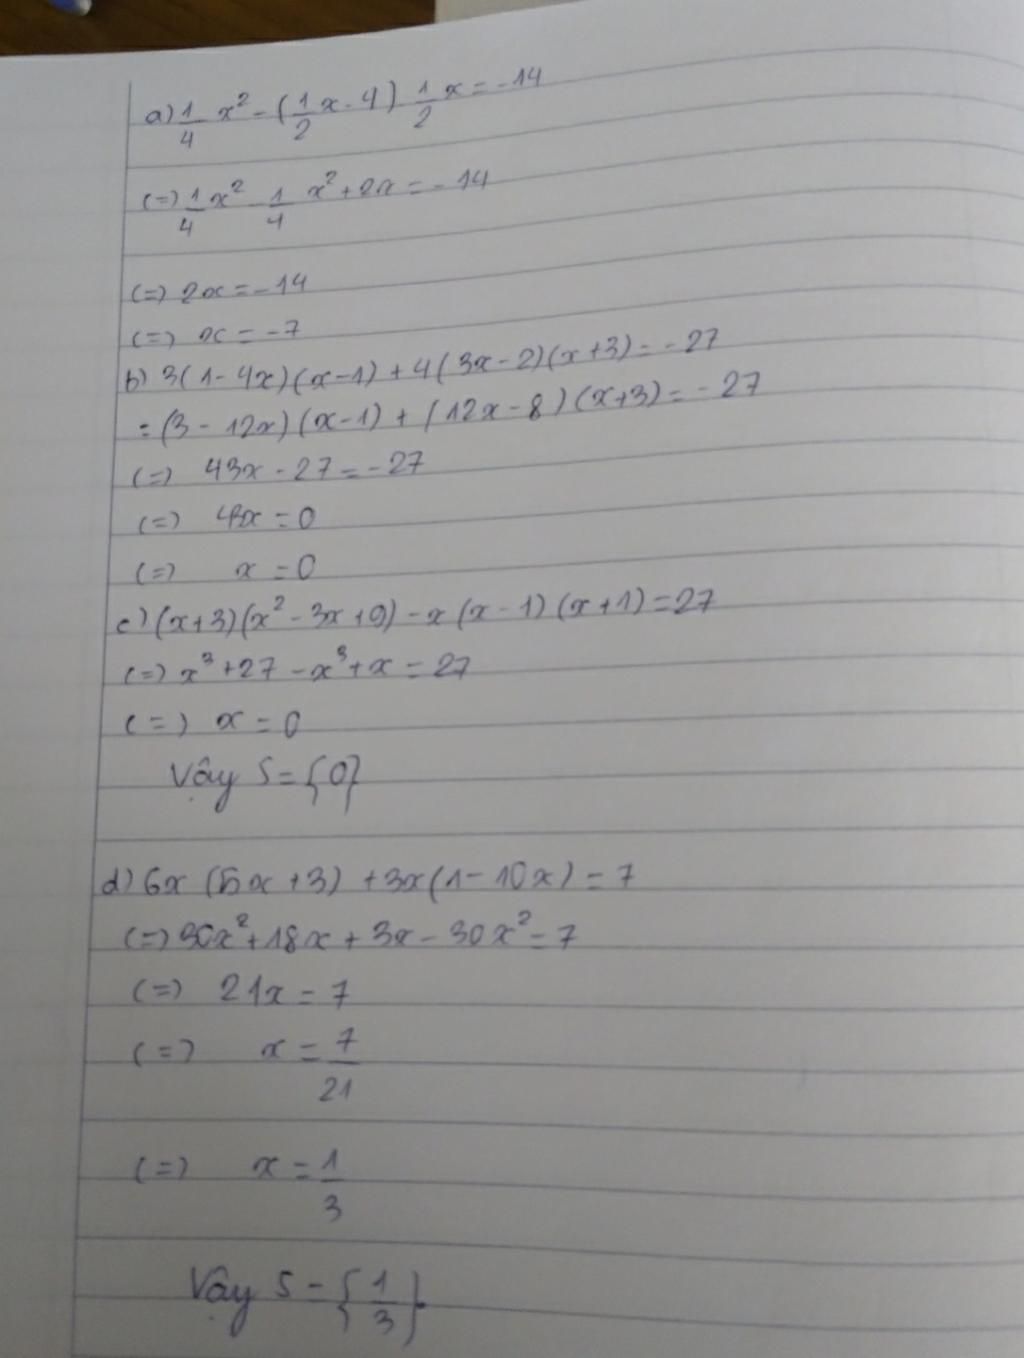 a) 1/4 x² - (1/2 x - 4) 1/2 x = -14
(=) 1/4 x² - 1/4 x² + 2x = -14
(=) 2x = -14
(=) x = -7
b) 3(1 - 4x)(x - 1) + 4(3x - 2)(x + 3) = -27
= (3 - 12x)(x - 1) + (12x - 8)(x + 3) = -27
(=) 43x - 27 = -27
(=) 4x = 0
(=) x = 0
c) (x + 3)(x² - 3x + 9) - x(x - 1)(x + 1) = 27
(=) x³ + 27 - x³ + x = 27
(=) x = 0
Vậy S = {0}
d) 6x (5x + 3) + 3x(1 - 10x) = 7
(=) 30x² + 18x + 3x - 30x² = 7
(=) 21x = 7
(=) x = 7/21
(=) x = 1/3
Vậy S = {1/3}.